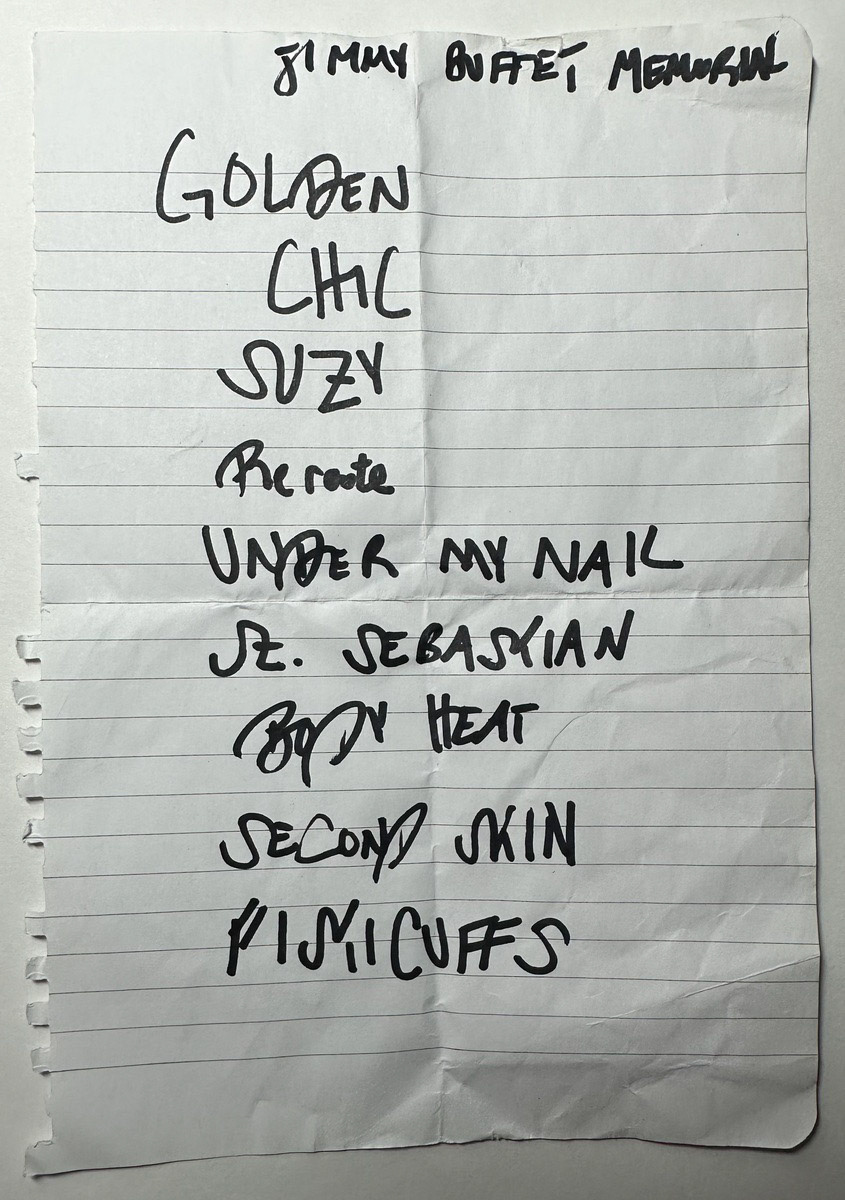 JIMMY BUFFET MEMORIAL
GOLDEN
CHIC
SUZY
Reroute
UNDER MY NAIL
ST. SEBASTIAN
BODY HEAT
SECOND SKIN
FISTICUFFS